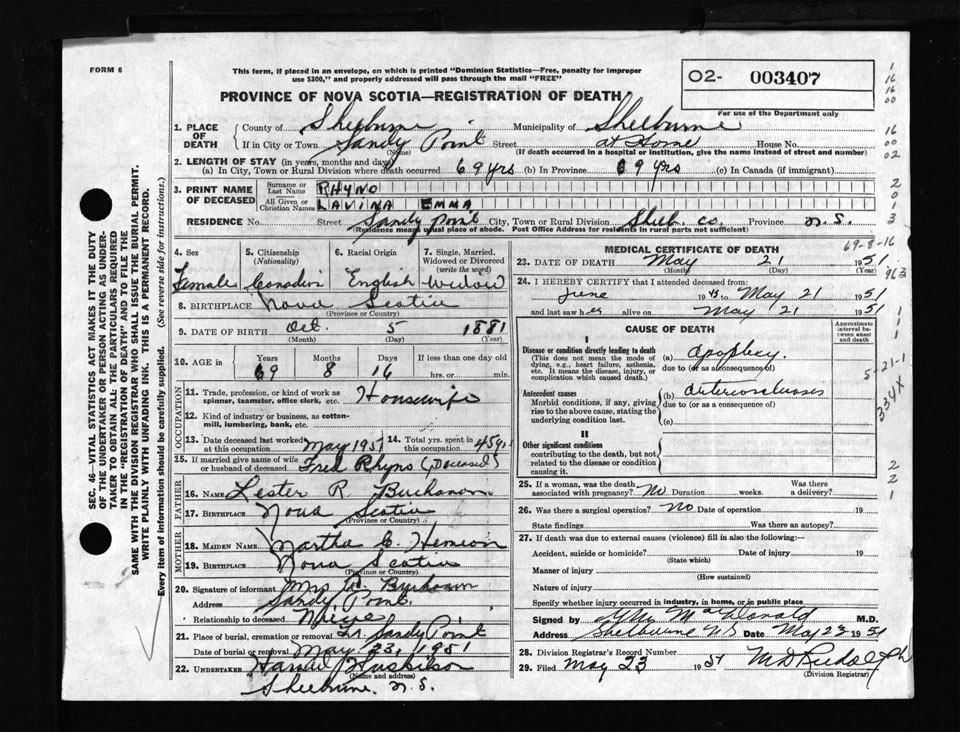 FORM 6
This form, if placed in an envelope, on which is printed "Dominion Statistics—Free, penalty for improper
use $300," and properly addressed will pass through the mail "FREE"
O2- 003407
For use of the Department only
PROVINCE OF NOVA SCOTIA—REGISTRATION OF DEATH
1. PLACE OF DEATH County of Shelburne Municipality of Shelburne
If in City or Town Sandy Point Street at Home House No.
(Name) (If death occurred in a hospital or institution, give the name instead of street and number)
2. LENGTH OF STAY (in years, months and days)
(a) In City, Town or Rural Division where death occurred 69 yrs (b) In Province 69 yrs (c) In Canada (if immigrant)
3. PRINT NAME OF DECEASED Surname or Last Name RHYNO
All Given or Christian Names LAVINA EMMA
RESIDENCE No. Street Sandy Point City, Town or Rural Division Shelb. Co. Province N.S.
(Residence means usual place of abode. Post Office Address for residents in rural parts not sufficient)
4. Sex Female
5. Citizenship (Nationality) Canadin
6. Racial Origin English
7. Single, Married, Widowed or Divorced (write the word) Widow
8. BIRTHPLACE Nova Scotia
(Province or Country)
9. DATE OF BIRTH Oct. 5 1881
(Month) (Day) (Year)
10. AGE in Years 69 Months 8 Days 16 If less than one day old hrs. or min.
OCCUPATION
11. Trade, profession, or kind of work as spinner, teamster, office clerk, etc. Housewife
12. Kind of industry or business, as cotton-mill, lumbering, bank, etc.
13. Date deceased last worked at this occupation May 1951 14. Total yrs. spent in this occupation 45 yrs
15. If married give name of wife or husband of deceased Fred Rhyno (Deceased)
FATHER
16. NAME Lester R. Buchanan
17. BIRTHPLACE Nova Scotia
(Province or Country)
MOTHER
18. MAIDEN NAME Martha C. Hemeon
19. BIRTHPLACE Nova Scotia
(Province or Country)
20. Signature of informant Mrs Buchanan
Address Sandy Point.
Relationship to deceased Niece
21. Place of burial, cremation or removal Sandy Point
Date of burial or removal May 23, 1951
22. UNDERTAKER Huskilson
(Name and address)
Shelburne. N.S.
MEDICAL CERTIFICATE OF DEATH
69-8-16
23. DATE OF DEATH May 21 1951
(Month) (Day) (Year)
24. I HEREBY CERTIFY that I attended deceased from:
June 19 to May 21 1951
and last saw her alive on May 21 1951
CAUSE OF DEATH
Approximate interval between onset and death
I
Disease or condition directly leading to death
(This does not mean the mode of dying, e.g., heart failure, asthenia, etc. It means the disease, injury, or complication which caused death.)
(a) Apoplexy.
due to (or as a consequence of)
Antecedent causes
Morbid conditions, if any, giving rise to the above cause, stating the underlying condition last.
(b) Arteriosclerosis
due to (or as a consequence of)
(c)
II
Other significant conditions
contributing to the death, but not related to the disease or condition causing it.
5-21-1
334X
25. If a woman, was the death associated with pregnancy? No Duration weeks. Was there a delivery?
26. Was there a surgical operation? No Date of operation 19
State findings Was there an autopsy?
27. If death was due to external causes (violence) fill in also the following:—
Accident, suicide or homicide? Date of injury 19
(State which)
Manner of injury
(How sustained)
Nature of injury
Specify whether injury occurred in industry, in home, or in public place
Signed by McDonald M.D.
Address Shelburne NS Date May 23 1951
28. Division Registrar's Record Number
29. Filed May 23 1951
(Division Registrar)
SEC. 46—VITAL STATISTICS ACT MAKES IT THE DUTY
OF THE UNDERTAKER OR PERSON ACTING AS UNDER-
TAKER TO OBTAIN ALL THE PARTICULARS REQUIRED
IN THE "REGISTRATION OF DEATH" AND TO FILE THE
SAME WITH THE DIVISION REGISTRAR WHO SHALL ISSUE THE BURIAL PERMIT.
WRITE PLAINLY WITH UNFADING INK. THIS IS A PERMANENT RECORD.
Every item of information should be carefully supplied. (See reverse side for instructions.)